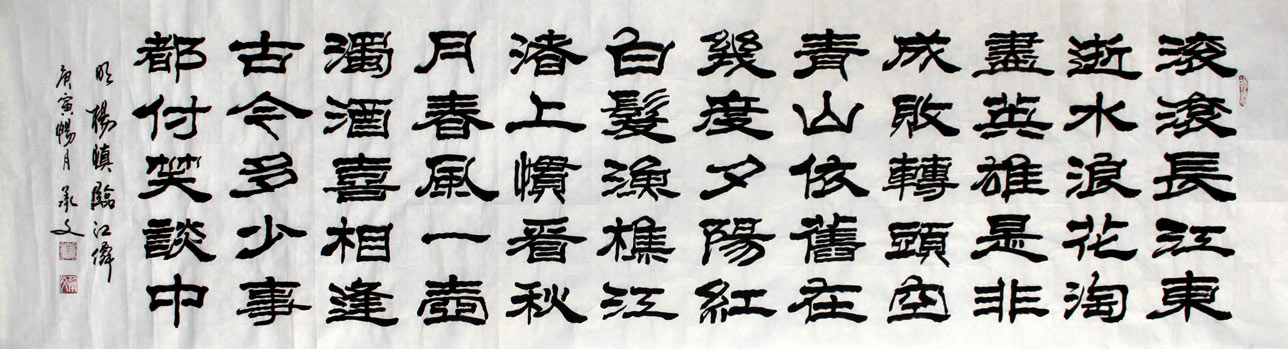 滚滚長江東
逝水浪花淘
盡英雄是非
成敗轉頭空
青山依舊在
幾度夕陽紅
白髮漁樵江
渚上慣看秋
月春風一壺
濁酒喜相逢
古今多少事
都付笑談中
明楊慎臨江僊
庚寅暢月承文